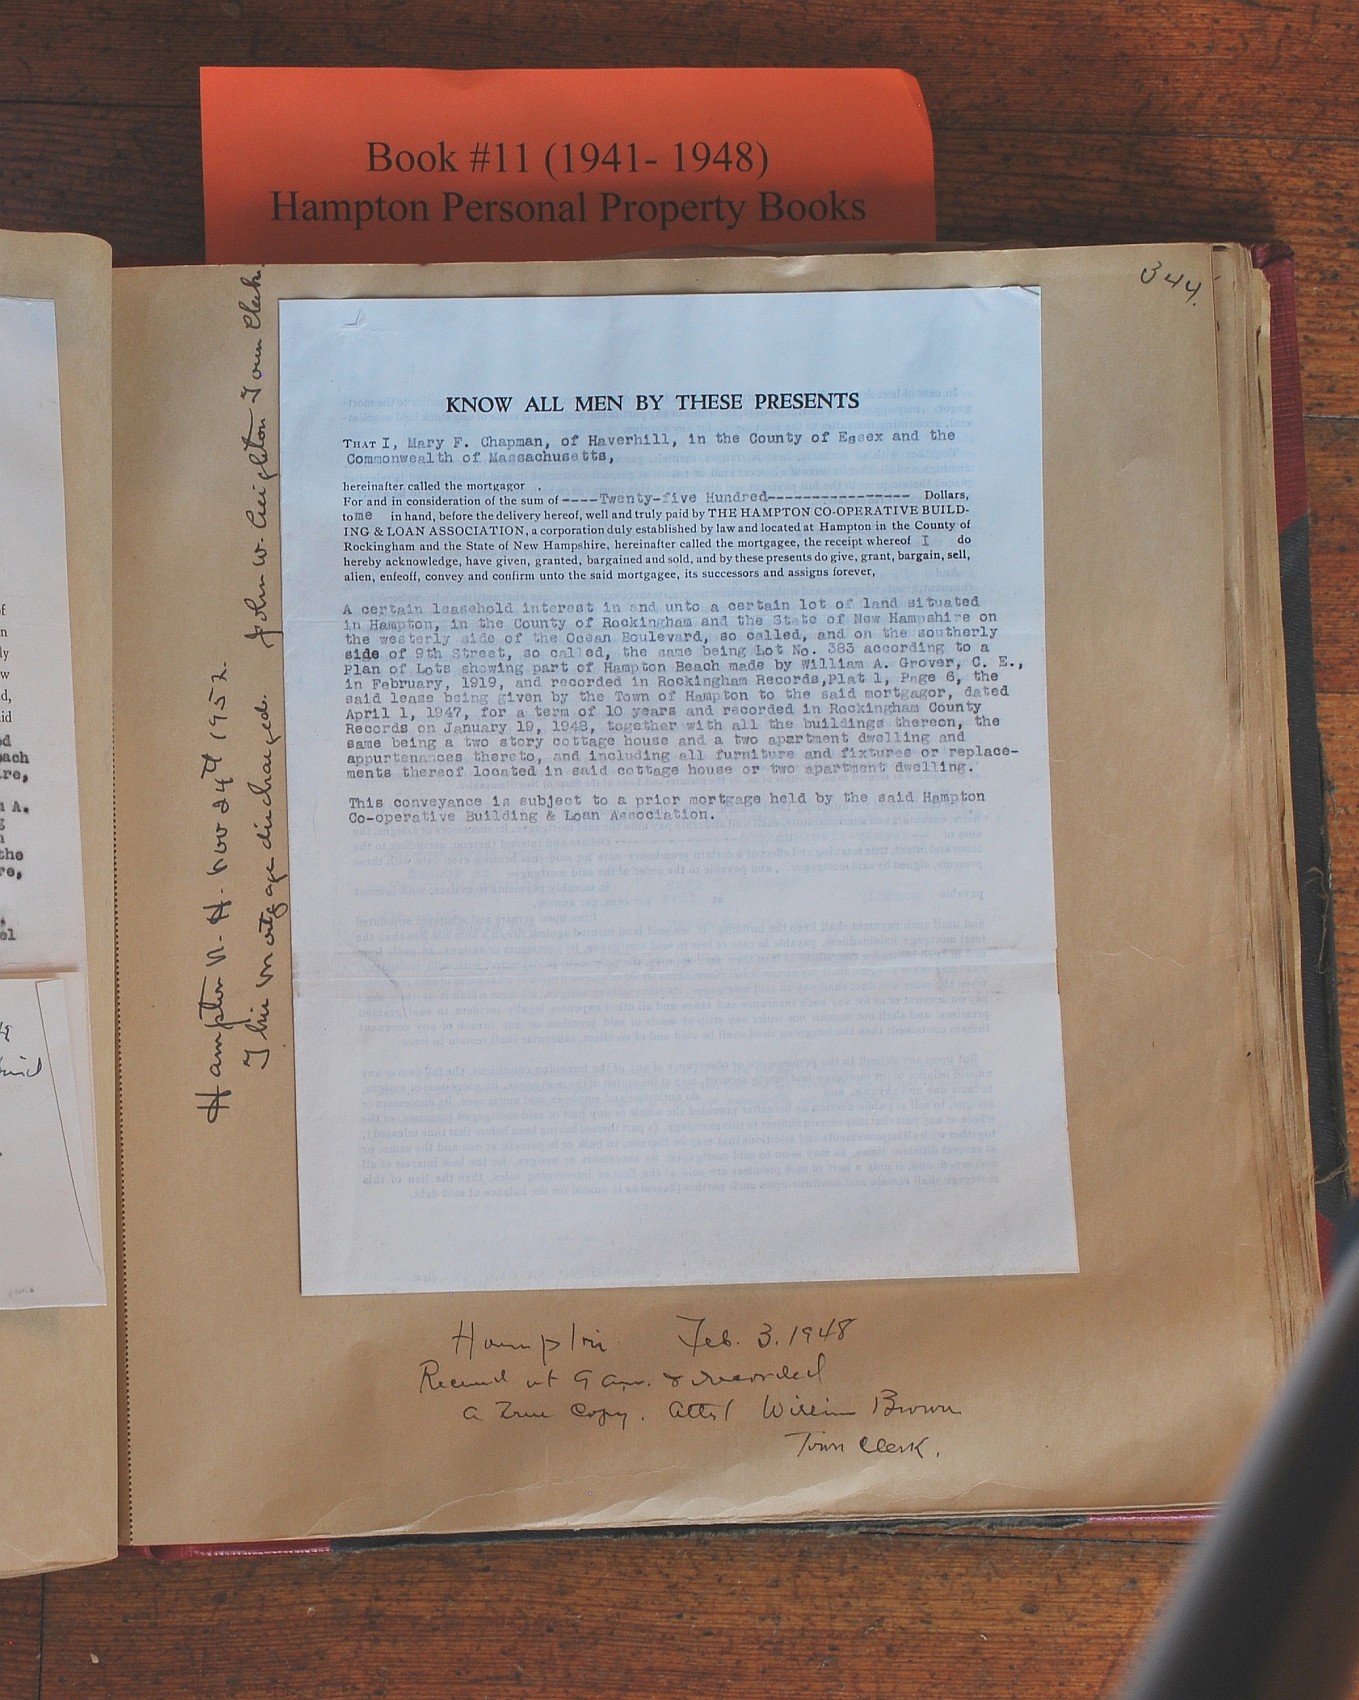 Book #11 (1941- 1948)
Hampton Personal Property Books
344.
KNOW ALL MEN BY THESE PRESENTS
THAT I, Mary F. Chapman, of Haverhill, in the County of Essex and the
Commonwealth of Massachusetts,
hereinafter called the mortgagor .
For and in consideration of the sum of ----Twenty-five Hundred---------------- Dollars,
to me in hand, before the delivery hereof, well and truly paid by THE HAMPTON CO-OPERATIVE BUILD-
ING & LOAN ASSOCIATION, a corporation duly established by law and located at Hampton in the County of
Rockingham and the State of New Hampshire, hereinafter called the mortgagee, the receipt whereof I do
hereby acknowledge, have given, granted, bargained and sold, and by these presents do give, grant, bargain, sell,
alien, enfeoff, convey and confirm unto the said mortgagee, its successors and assigns forever,
A certain leasehold interest in and unto a certain lot of land situated
in Hampton, in the County of Rockingham and the State of New Hampshire on
the westerly side of the Ocean Boulevard, so called, and on the southerly
side of 9th Street, so called, the same being Lot No. 383 according to a
Plan of Lots showing part of Hampton Beach made by William A. Grover, C. E.,
in February, 1919, and recorded in Rockingham Records,Plat 1, Page 6, the
said lease being given by the Town of Hampton to the said mortgagor, dated
April 1, 1947, for a term of 10 years and recorded in Rockingham County
Records on January 19, 1948, together with all the buildings thereon, the
same being a two story cottage house and a two apartment dwelling and
appurtenances thereto, and including all furniture and fixtures or replace-
ments thereof located in said cottage house or two apartment dwelling.
This conveyance is subject to a prior mortgage held by the said Hampton
Co-operative Building & Loan Association.
Hampton N. H. Nov 24th 1952.
This mortgage discharged. John W. Creighton Town Clerk.
Hampton Feb. 3. 1948
Received at 9 a.m. & recorded
a True Copy. Attest William Brown
Town Clerk.